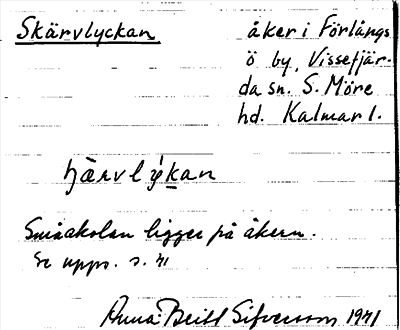 Skärvlyckan
åker i Förlångs
ö by, Vissefjär-
da sn. S. Möre
hd. Kalmar l.
hærvlýkan
Småskolan ligger på åkern.
Se upps. s. 71
Anna-Britt Sifversson 1941